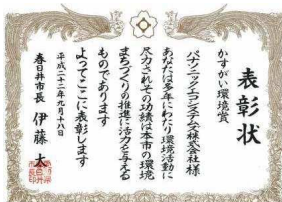 表彰状
かすがい環境賞
パナソニックエコシステムズ株式会社様
あなたは多年にわたり環境活動に
尽力されその功績は本市の環境
まちづくりの推進に活力を与える
ものであります
よってここに表彰します
平成二十二年九月十八日
春日井市長 伊藤 太